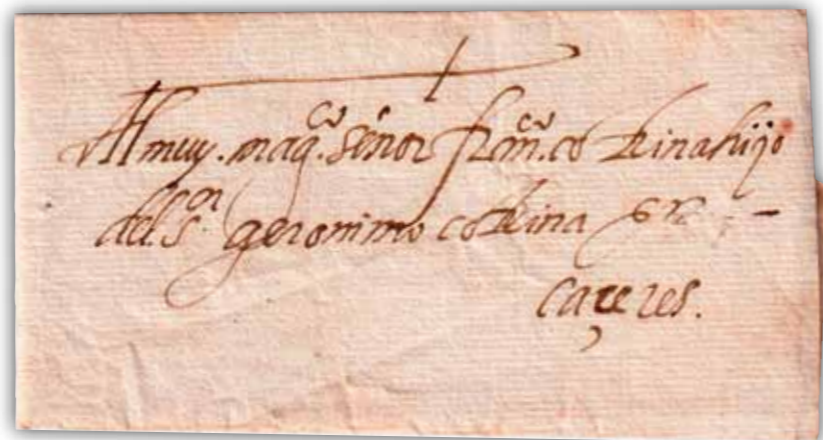 Al muy. mag.co señor fran.co cotrina hijo
del s.or geronimo cotrina en
caçeres.